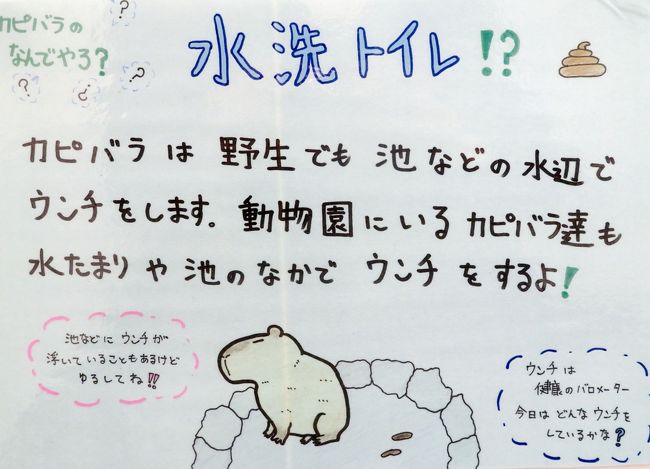 カピバラの
なんでやろ?
? ? ?
水洗トイレ!?
カピバラは野生でも池などの水辺で
ウンチをします。動物園にいるカピバラ達も
水たまりや池のなかでウンチをするよ!
池などにウンチが
浮いていることもあるけど
ゆるしてね!!
ウンチは
健康のバロメーター
今日はどんなウンチを
しているかな?